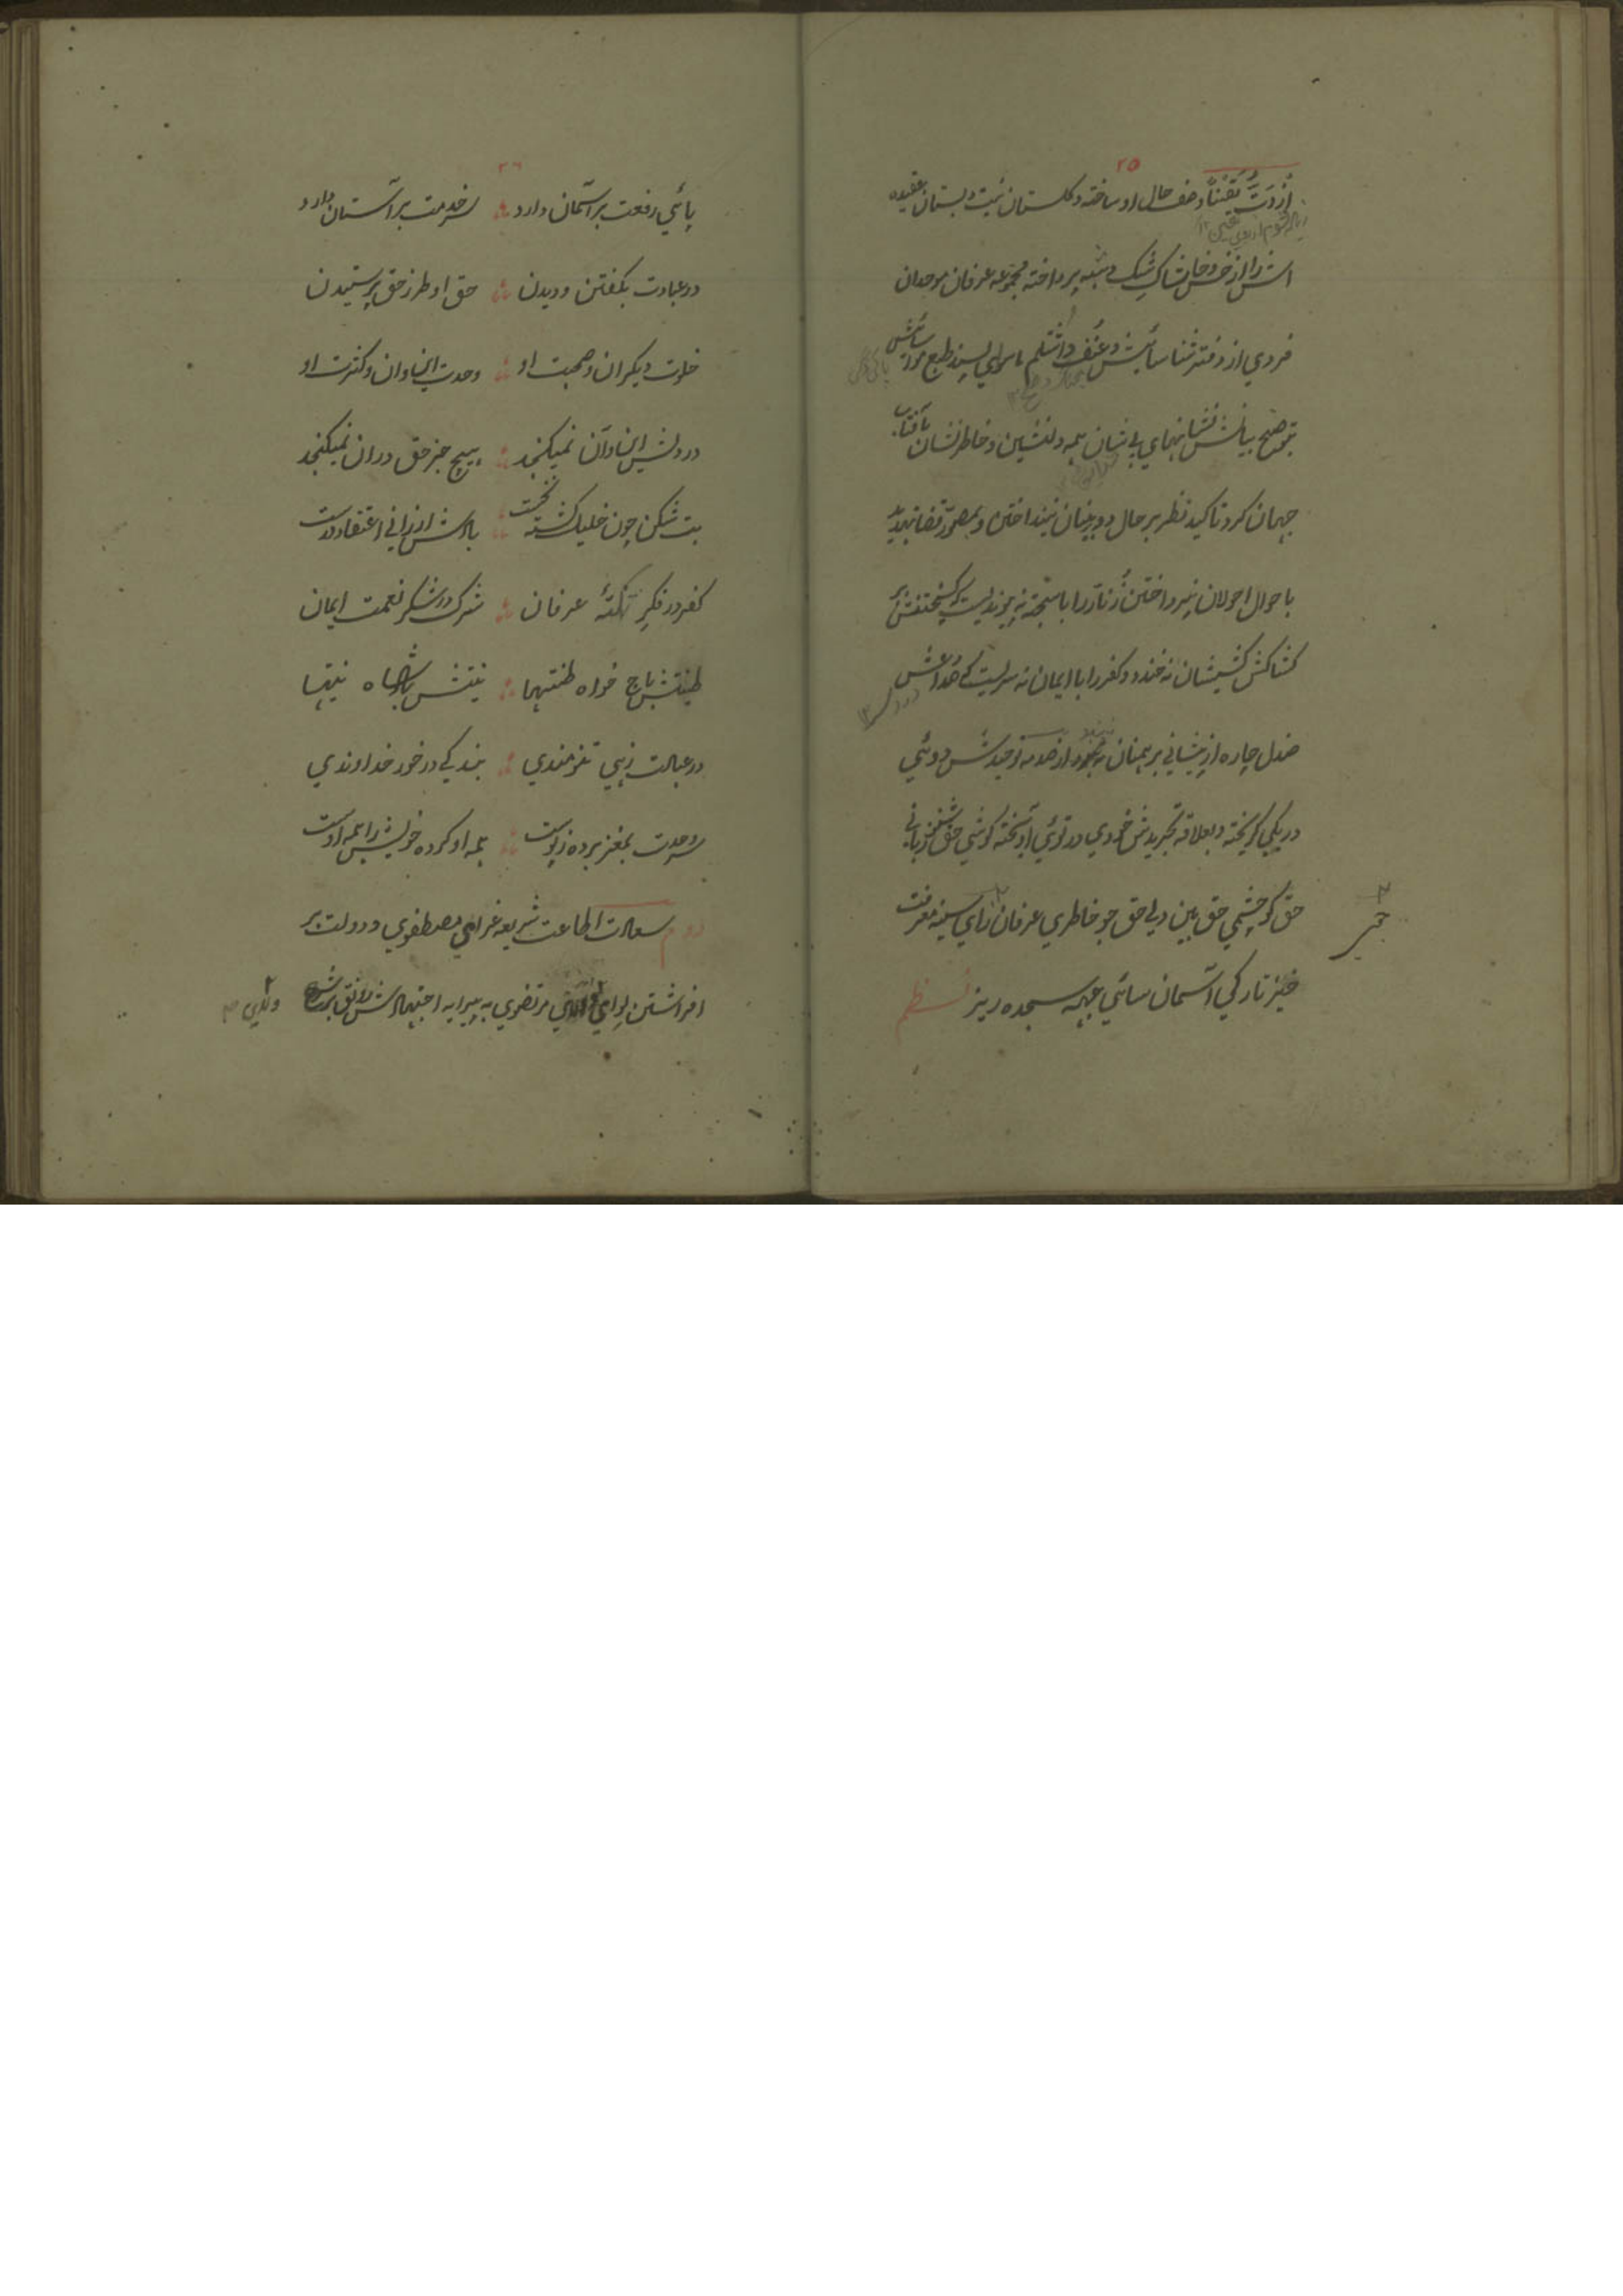 ۲۵
اَزْدَدتُّ یَقْیناً وصف حال او ساخته و گلستان نیت و بستان عقیده
اش را از خس و خاشاک شک و شبه پرداخته مجموعه عرفان موحدان
فردی از دفتر شناسائیش و عنف و اشتلم ماسوای پسند طبع مدارائیش
بتوضیح بیانش نشانهای بی نشان همه دلنشین و خاطرنشان بآفتاب
جهان کرد تاکید نظر بر حال دوبینان نینداختن و بمصور قضا تهدید
باحوال احولان نپرداختن زنار را با سبحه نه پیوندیست که گسیختنش بر
کشاکش کشیشان نه خندد و کفر را با ایمان نه سریست که صداعش
صندل چاره از پیشانی برهمنان نه از صدمه توحیدش دوئی
در یکی گریخته و بعلاقه تجریدش خودی در توئی آویخته گوشی حق شنو زبانی
حق گو چشمی حق بین دلی حق جو خاطری عرفان زای سینه معرفت
خیز تارکی آسمان سائی جبهه سجده ریز نظم
۲۶
پائی رفعت بر آسمان دارد سر خدمت بر آستان دارد
در عبادت بگفتن و دیدن حق او طرز حق پرستیدن
خلوت دیگران و صحبت او وحدت این و آن و کثرت او
در دلش این و آن نمیگنجد هیچ جز حق در آن نمیگنجد
بت شکن چون خلیل گشته نخست باد ارزانی اعتقاد درست
کفر در فکر نکتهٔ عرفان شرک در شکر نعمت ایمان
طینتش باج خواه طینتها نیتش پادشاه نیتها
در عبادت زهی تنومندی بندگی در خور خداوندی
سر وحدت بمغز برده ز پوست همه او کرده خویش را همه اوست
دوم سعادت اطاعت شریعه غرای مصطفوی و دولت بر
افراشتن لوای ولای مرتضوی به پیرایه اجتهادش رونق